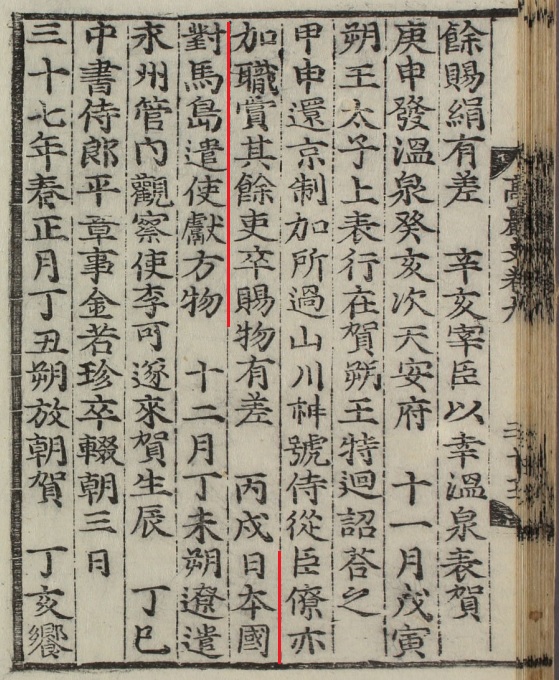 餘賜絹有差　辛亥宰臣以幸溫泉表賀
庚申發溫泉癸亥次天安府　十一月戊寅
朔王太子上表行在賀朔王特迴詔荅之
甲申還京制加所過山川神號侍從臣僚亦
加職賞其餘吏卒賜物有差　丙戌日本國
對馬島遣使獻方物　十二月丁未朔遼遣
永州管內觀察使李可遂來賀生辰　丁巳
中書侍郎平章事金若珍卒輟朝三日
三十七年春正月丁丑朔放朝賀　丁亥饗